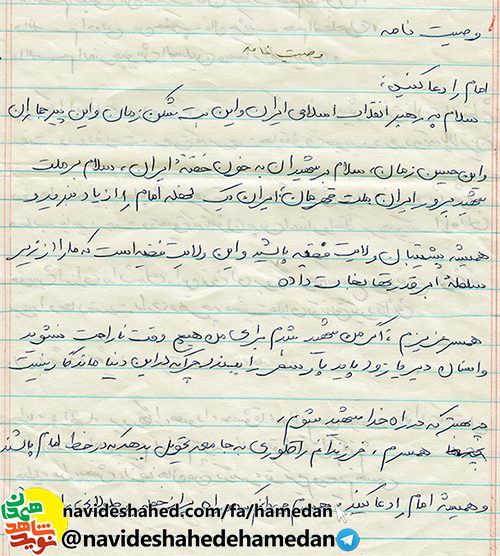 وصیت نامه
وصیت نامه
امام را دعا کنید؛
سلام به رهبر انقلاب اسلامی ایران و این بت شکن زمان و این پیر جماران
و این حسین زمان، سلام بر شهیدان به خون خفتهٔ ایران، سلام بر ملت
شهید پرور ایران ملت قهرمان ایران یک لحظه امام را از یاد نبرید
همیشه پشتیبان ولایت فقیه باشید و این ولایت فقیه است که ما را از زیر
سلطهٔ ابرقدرتها نجات داده
همسر عزیزم، اگر من شهید شدم برای من هیچ وقت ناراحت نشوید
و انسان دیر یا زود باید بار سفر را ببندد چرا که در این دنیا ماندگار نیست
چه بهتر که در راه خدا شهید شوم،
همسرم، فرزندانم را طوری به جامعه تحویل بدهد که در خط امام باشند
و همیشه امام را دعا کنید،
navideshahed.com/fa/hamedan
@navideshahedehamedan
نوید شاهد همدان